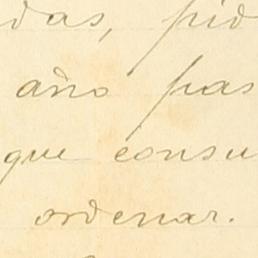 das, pid
año pas
que consu
ordenar.